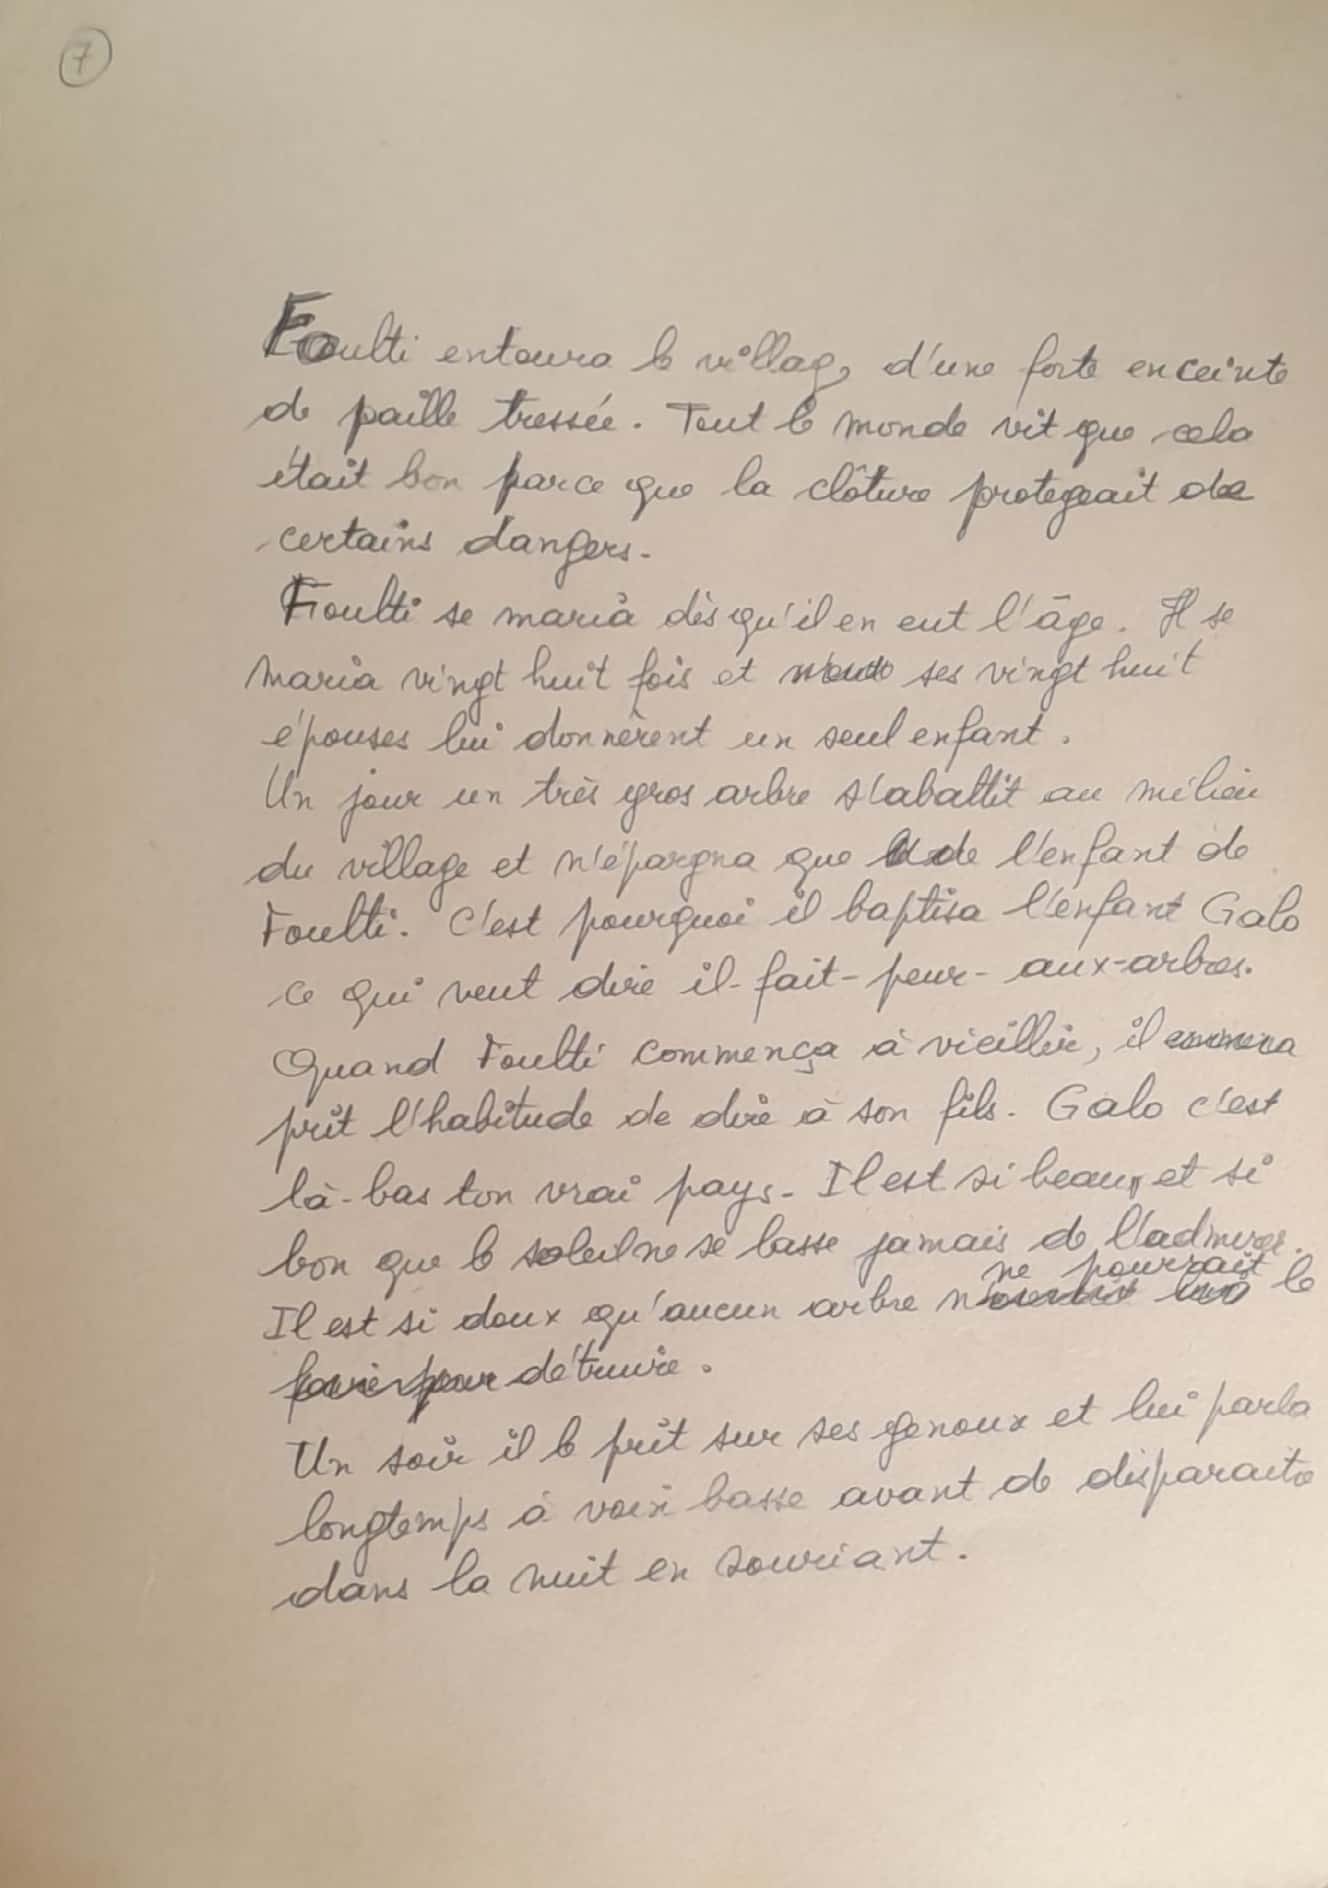 7
Foulti entoura le village d'une forte enceinte
de paille tressée. Tout le monde vit que cela
était bon parce que la clôture protegeait de
certains dangers.
Foulti se maria dès qu'il en eut l'âge. Il se
maria vingt huit fois et ses vingt huit
épouses lui donnèrent un seul enfant.
Un jour un très gros arbre s'abattit au milieu
du village et n'épargna que de l'enfant de
Foulti. C'est pourquoi il baptisa l'enfant Galo
ce qui veut dire il-fait-peur-aux-arbres.
Quand Foulti commença à vieillir, il
prit l'habitude de dire à son fils. Galo c'est
là-bas ton vrai pays. Il est si beau, et si
bon que le soleil ne se lasse jamais de l'admirer.
ne pourrait
Il est si doux qu'aucun arbre le
détruire.
Un soir il le prit sur ses genoux et lui parla
longtemps à voix basse avant de disparaitre
dans la nuit en souriant.